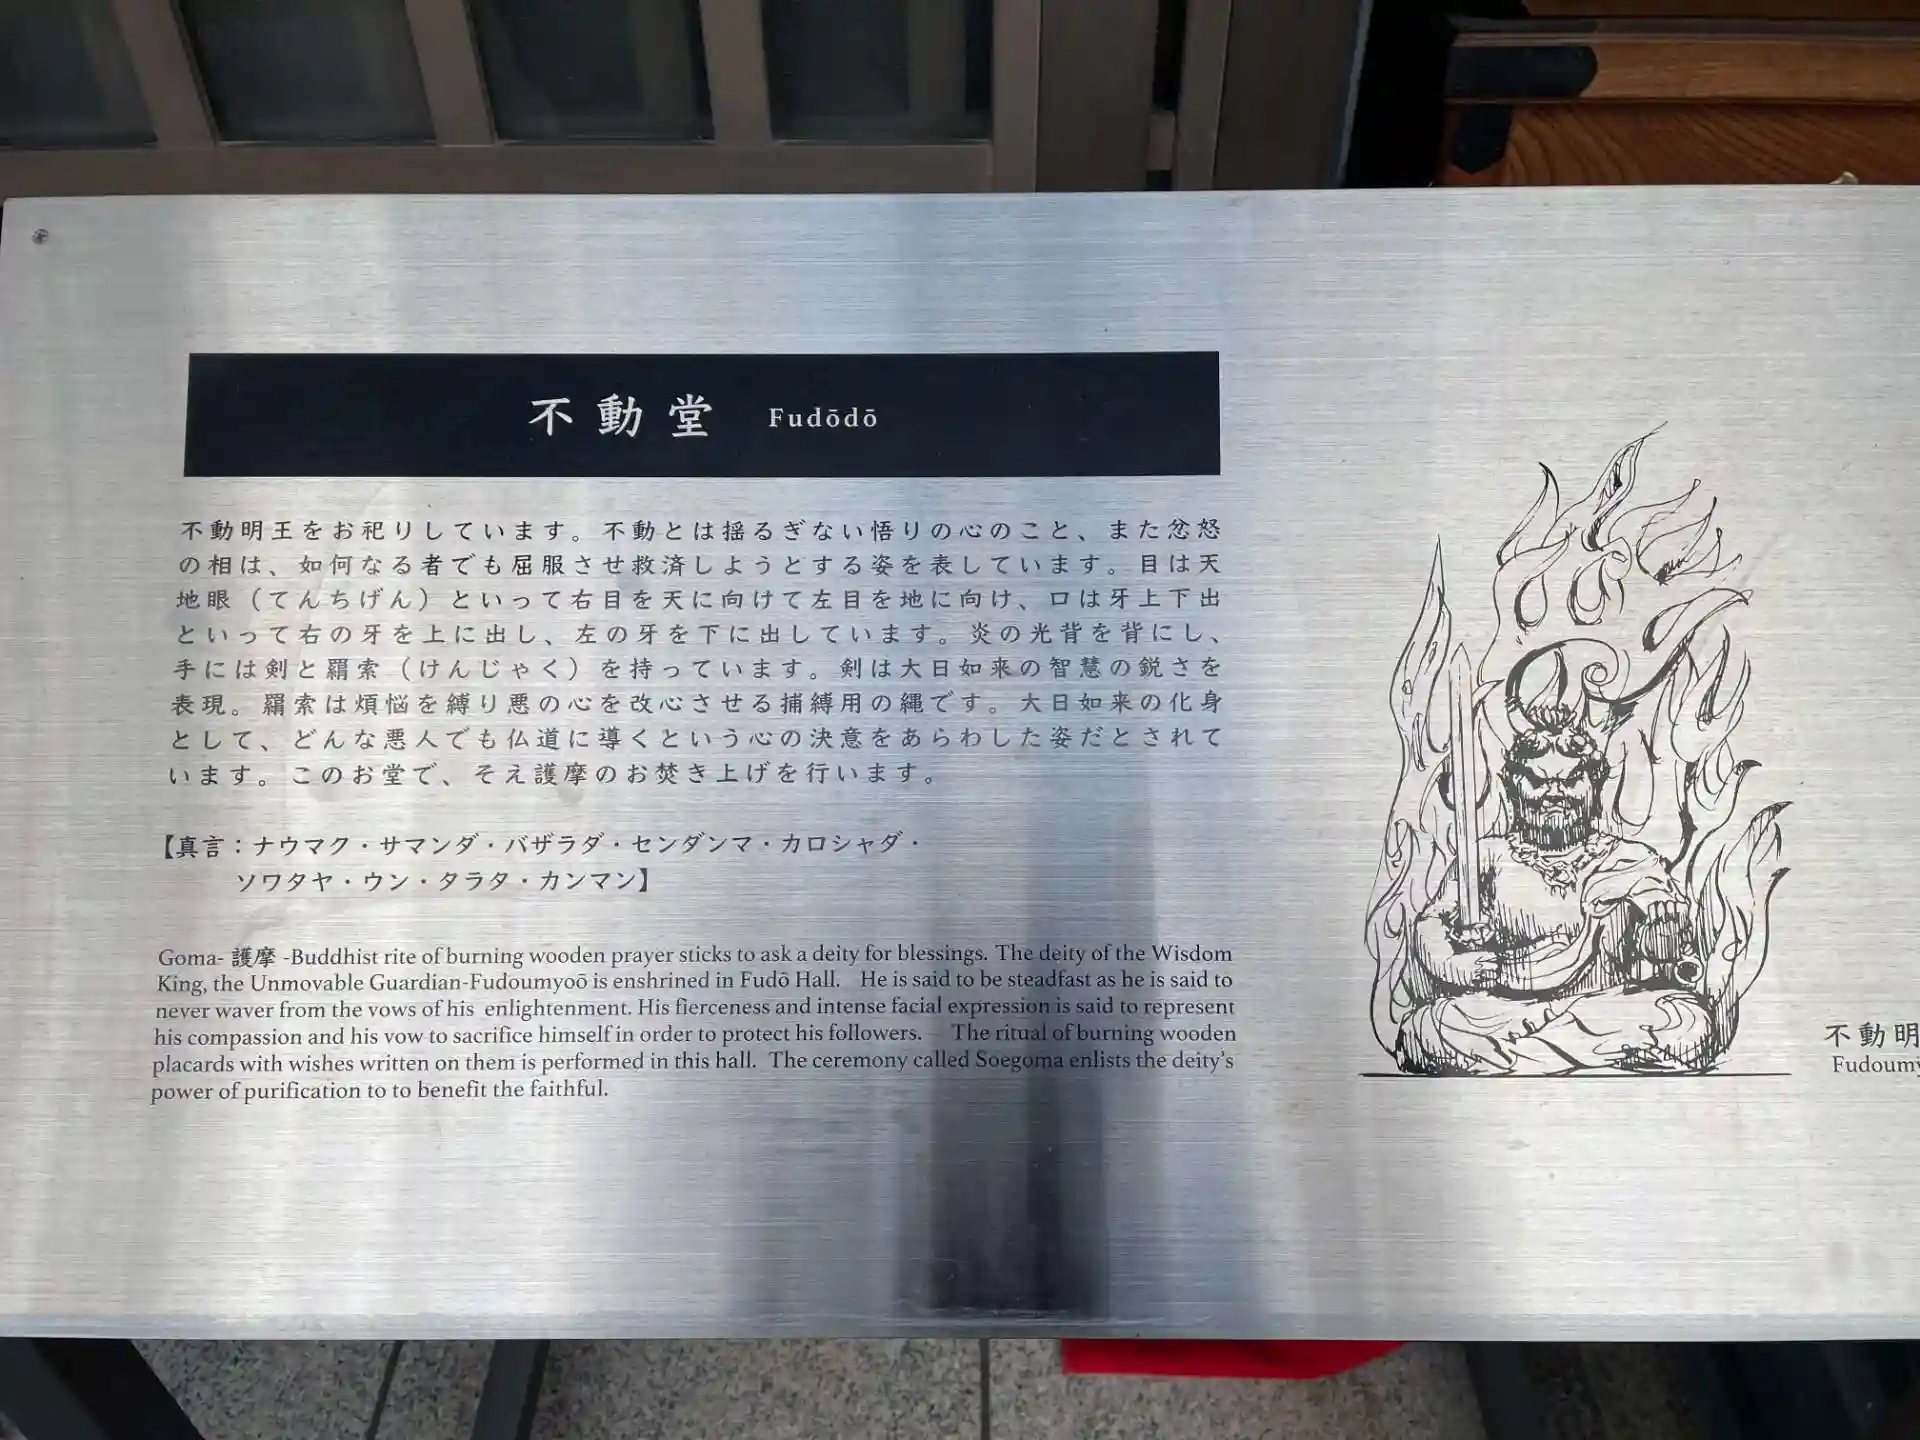 不動堂 Fudōdō
不動明王をお祀りしています。不動とは揺るぎない悟りの心のこと、また忿怒
の相は、如何なる者でも屈服させ救済しようとする姿を表しています。目は天
地眼（てんちげん）といって右目を天に向けて左目を地に向け、口は牙上下出
といって右の牙を上に出し、左の牙を下に出しています。炎の光背を背にし、
手には剣と羂索（けんじゃく）を持っています。剣は大日如来の智慧の鋭さを
表現。羂索は煩悩を縛り悪の心を改心させる捕縛用の縄です。大日如来の化身
として、どんな悪人でも仏道に導くという心の決意をあらわした姿だとされて
います。このお堂で、そえ護摩のお焚き上げを行います。
【真言：ナウマク・サマンダ・バザラダ・センダンマ・カロシャダ・
ソワタヤ・ウン・タラタ・カンマン】
Goma- 護摩 -Buddhist rite of burning wooden prayer sticks to ask a deity for blessings. The deity of the Wisdom
King, the Unmovable Guardian-Fudoumyoō is enshrined in Fudō Hall. He is said to be steadfast as he is said to
never waver from the vows of his enlightenment. His fierceness and intense facial expression is said to represent
his compassion and his vow to sacrifice himself in order to protect his followers. The ritual of burning wooden
placards with wishes written on them is performed in this hall. The ceremony called Soegoma enlists the deity's
power of purification to to benefit the faithful.
不動明
Fudoumy